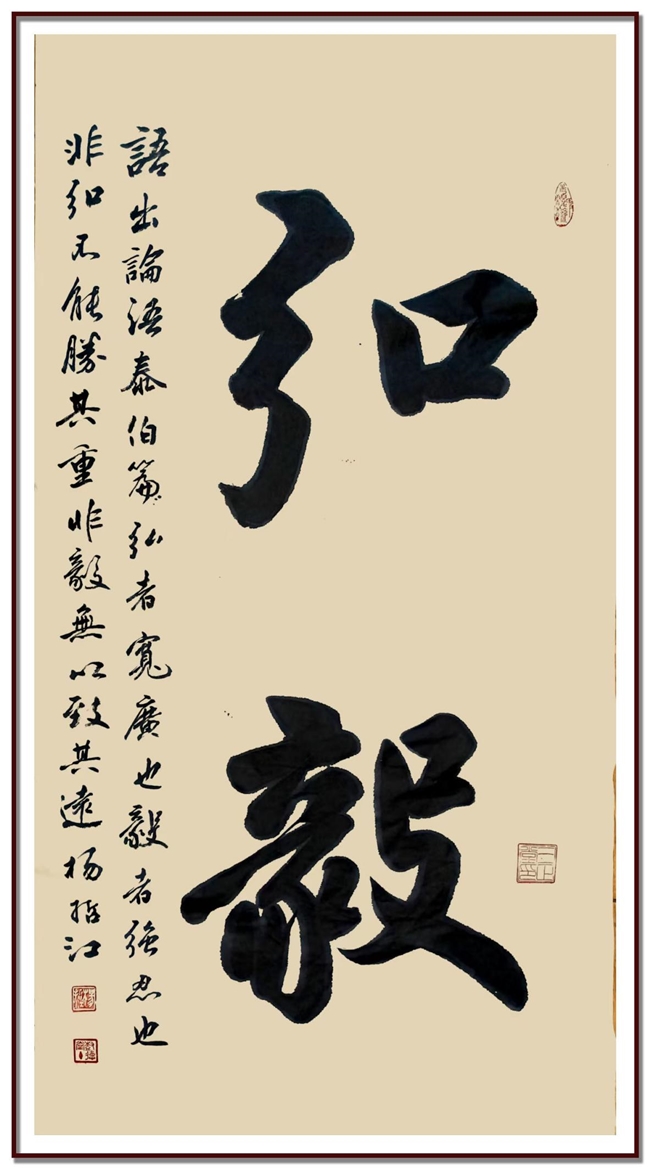 弘毅
語出論語泰伯篇弘者寬廣也毅者強忍也
非弘不能勝其重非毅無以致其遠楊哲江